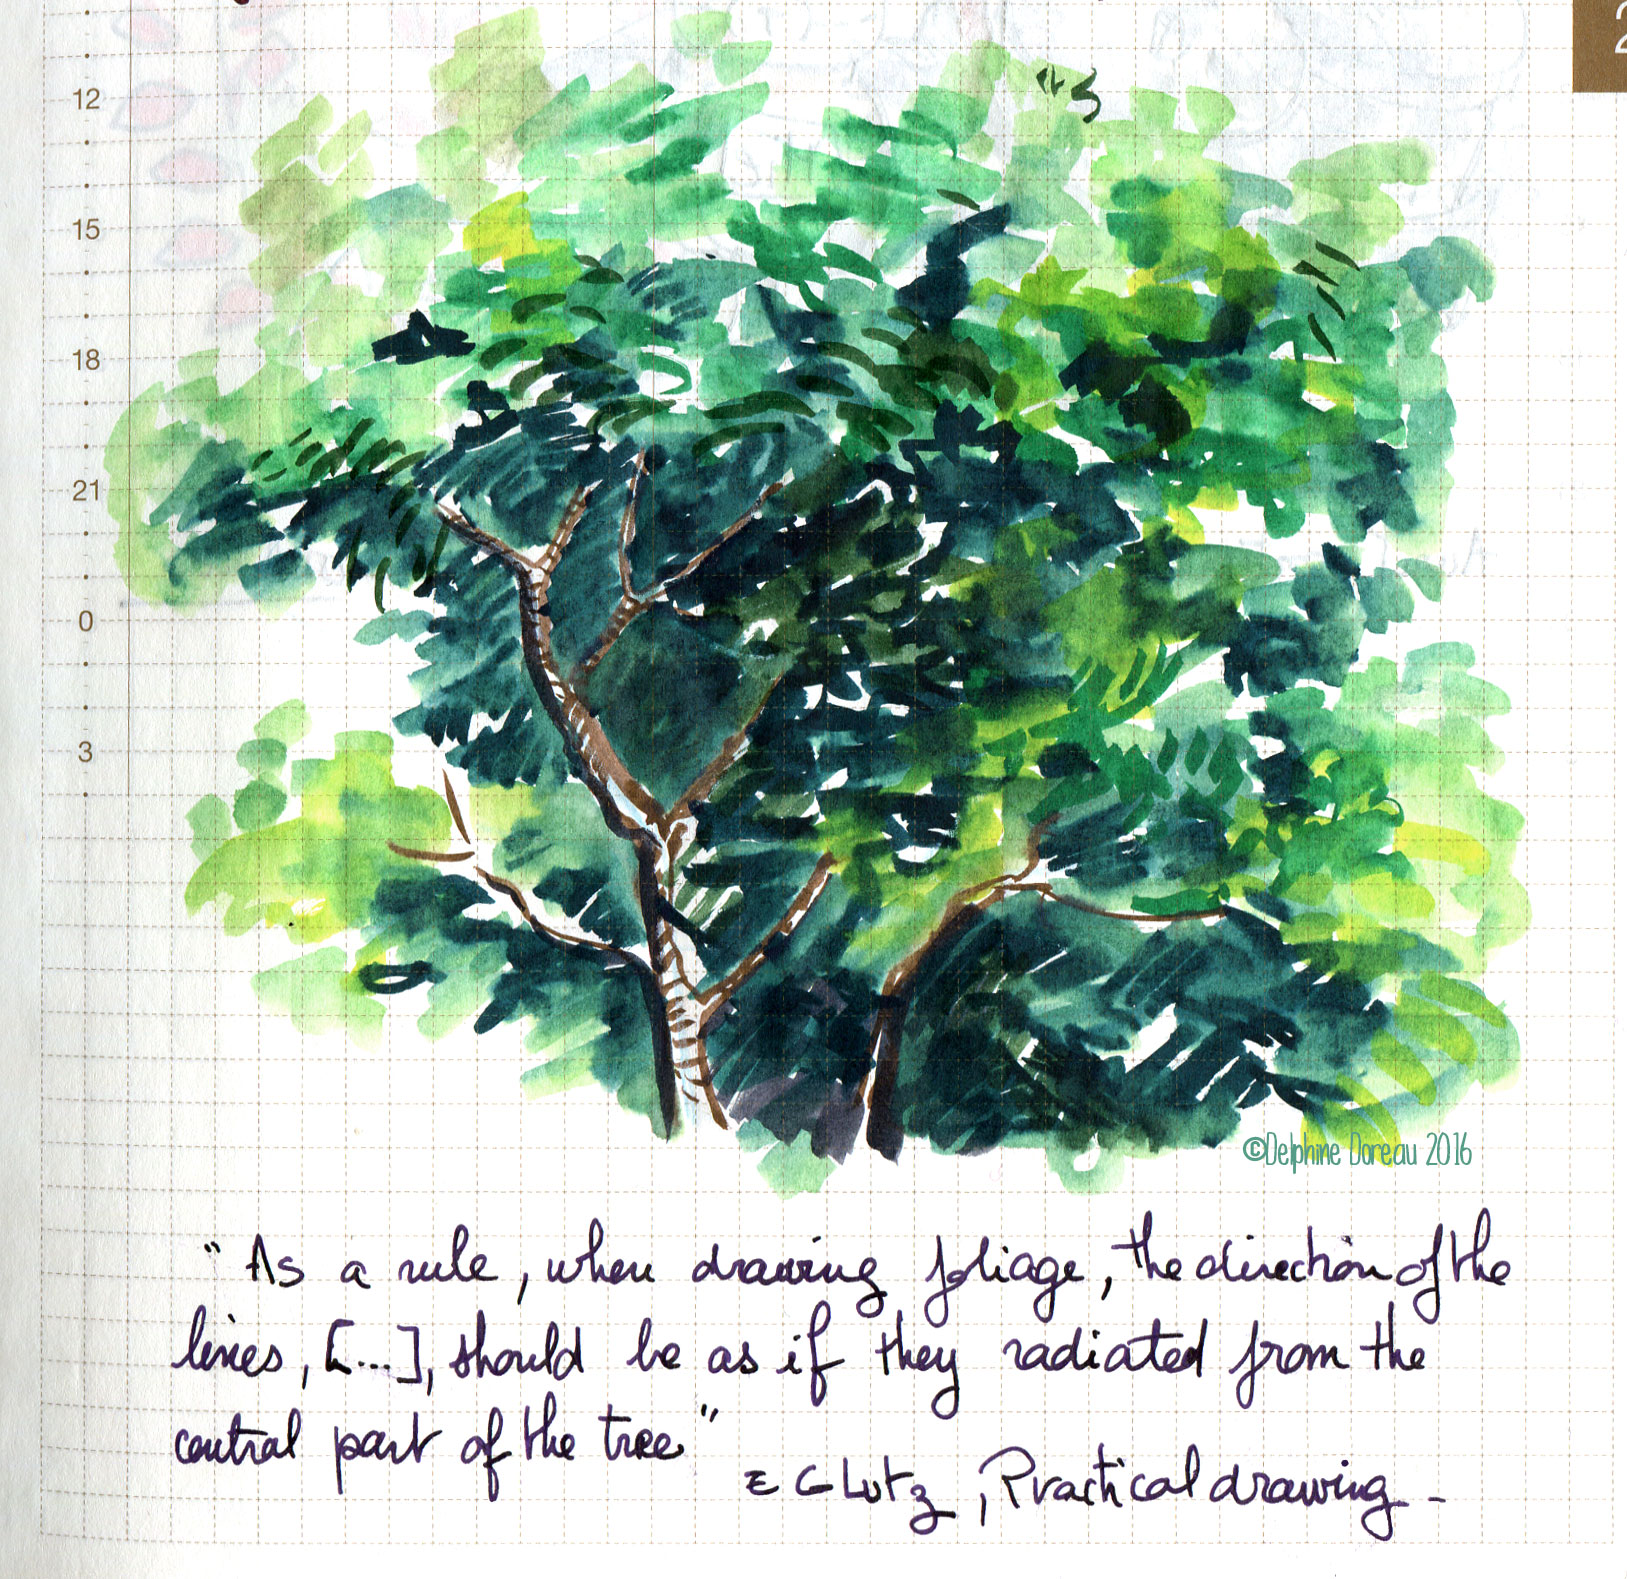 2
12
15
18
21
0
3
©Delphine Doreau 2016
" As a rule, when drawing foliage, the direction of the
lines, [...], should be as if they radiated from the
central part of the tree "
E G Lutz, Practical drawing -